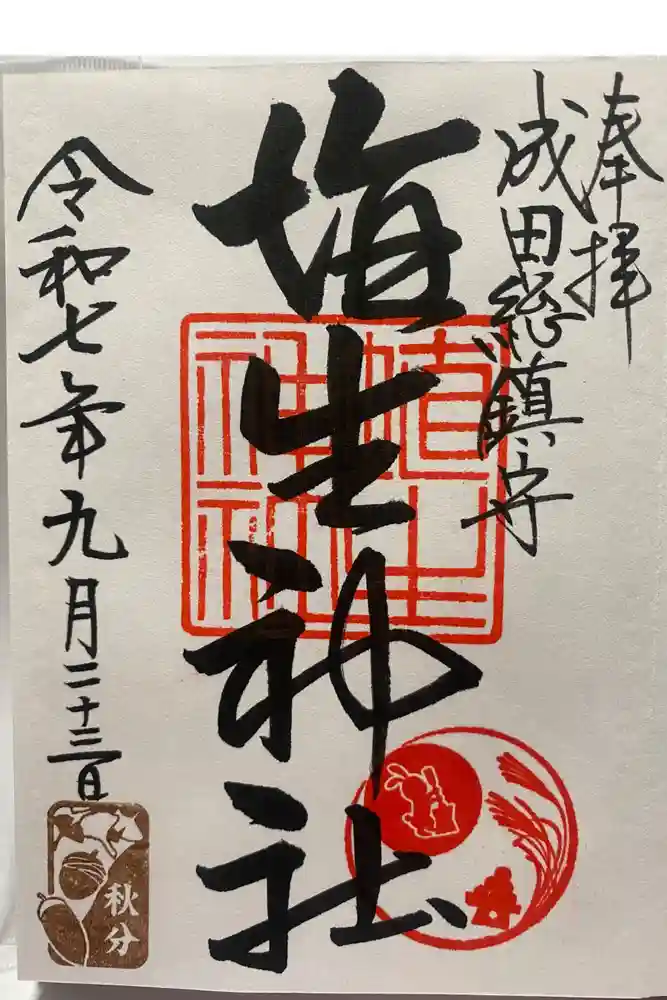 奉拝
成田總鎮守
埴生神社
埴生神社
令和七年九月二十三日
秋分